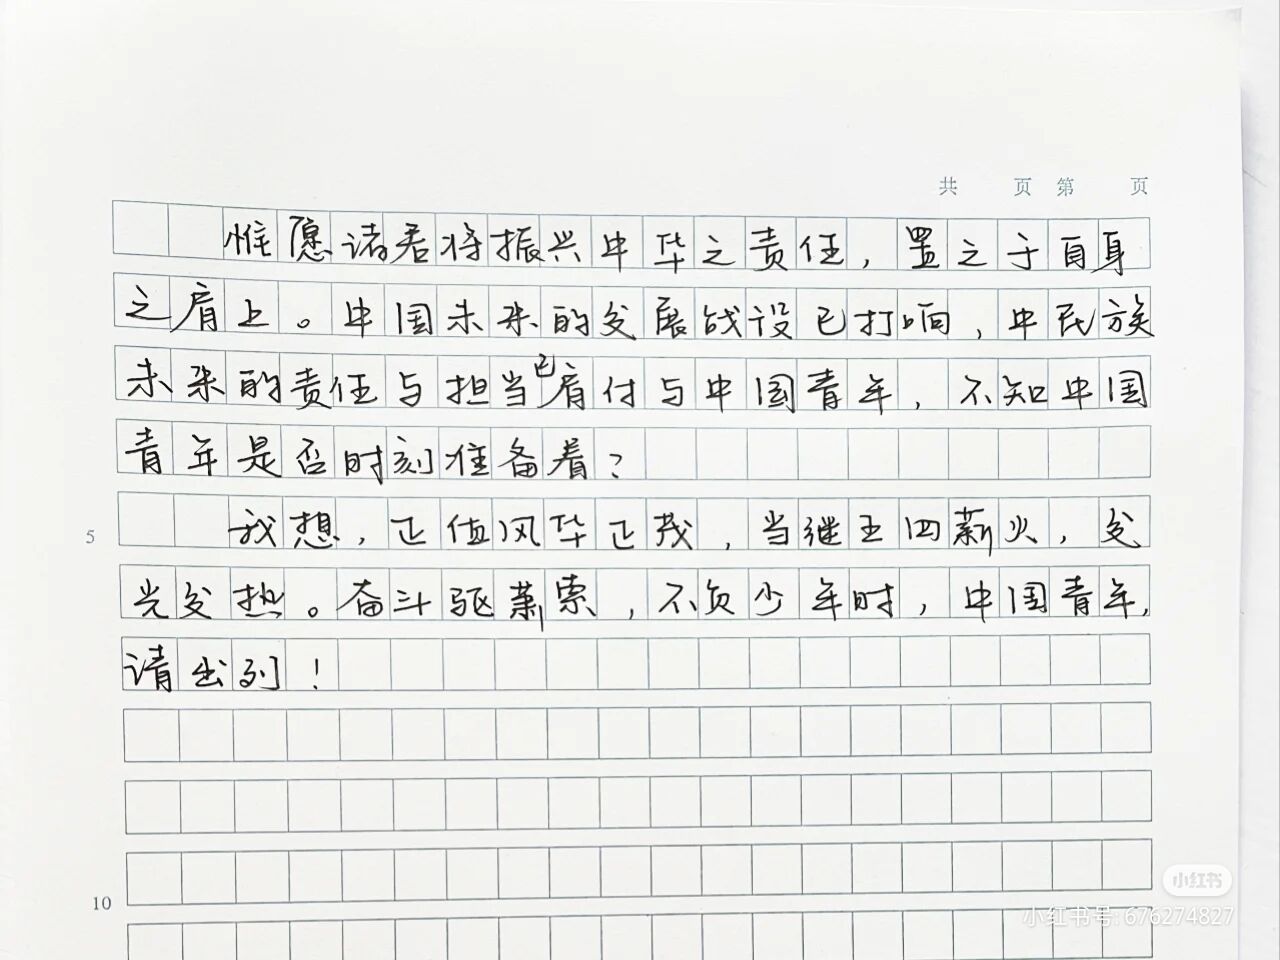 共 页 第 页
惟愿诸君将振兴中华之责任，置之于自身
之肩上。中国未来的发展战设已打响，中民族
未来的责任与担当已肩付与中国青年，不知中国
青年是否时刻准备着？
5
我想，正值风华正茂，当继王四薪火，发
光发热。奋斗驱萧索，不负少年时，中国青年，
请出列！
10
小红书
小红书号：676274827